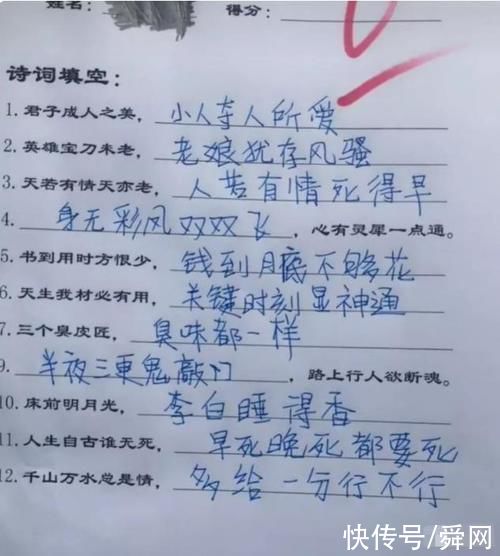 姓名： 得分：
诗词填空：
1. 君子成人之美， 小人夺人所爱
2. 英雄宝刀未老， 老娘犹存风骚
3. 天若有情天亦老， 人若有情死得早
4. 身无彩凤双双飞 ，心有灵犀一点通。
5. 书到用时方恨少， 钱到月底不够花
6. 天生我材必有用， 关键时刻显神通
7. 三个臭皮匠， 臭味都一样
9. 半夜三更鬼敲门 ，路上行人欲断魂。
10. 床前明月光， 李白睡得香
11. 人生自古谁无死， 早死晚死都要死
12. 千山万水总是情， 多给一分行不行
快传号/舜网